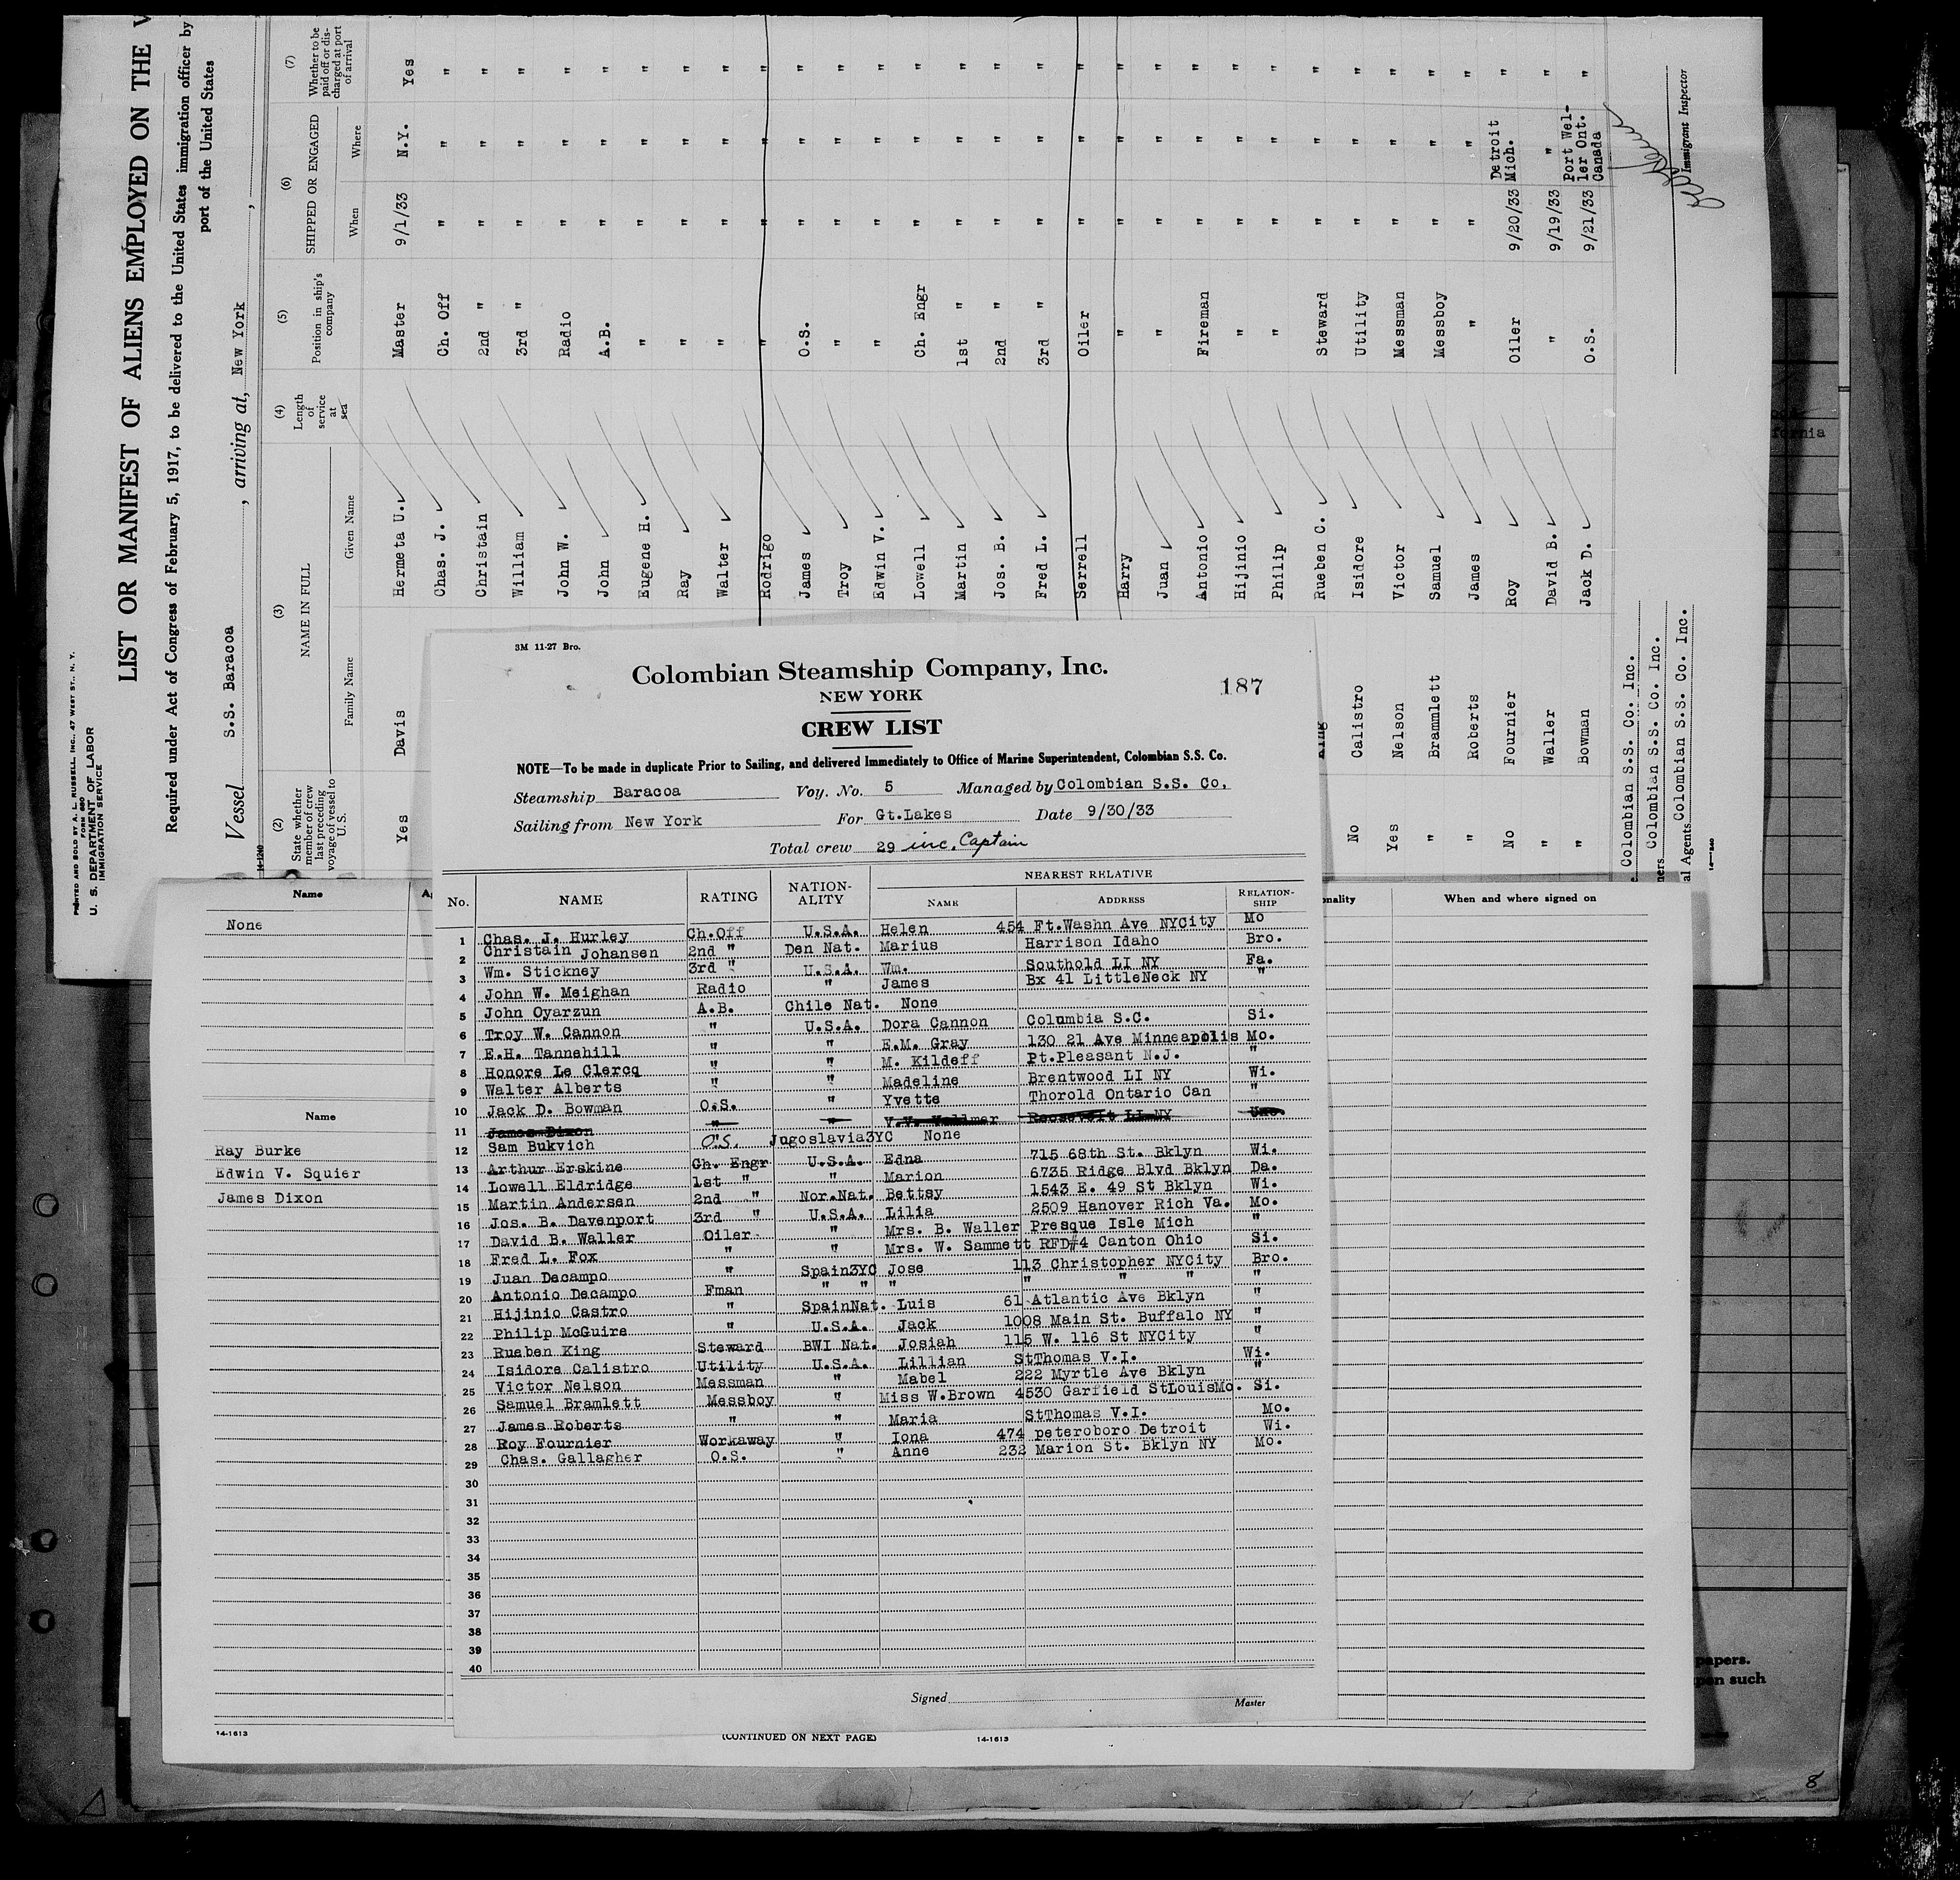 PRINTED AND SOLD BY A. L. RUSSELL, INC., 47 WEST ST., N. Y.
U. S. DEPARTMENT OF LABOR
IMMIGRATION SERVICE
LIST OR MANIFEST OF ALIENS EMPLOYED ON THE
Required under Act of Congress of February 5, 1917, to be delivered to the United States immigration officer by
port of the United States
Vessel S.S. Baracoa , arriving at, New York ,
14-1240
(2) (3) (4) (5) (6) (7)
State whether member of crew last preceding voyage of vessel to U.S.
NAME IN FULL
Family Name Given Name
Length of service at sea
Position in ship's company
SHIPPED OR ENGAGED
When Where
Whether to be paid off or discharged at port of arrival
Yes Davis Hermeta U. Master 9/1/33 N.Y. Yes
Chas. J. Ch. Off " " "
Christain 2nd " " " "
William 3rd " " " "
John W. Radio " " "
John A.B. " " "
Eugene H. " " " "
Ray " " " "
Walter " " " "
Rodrigo " " " "
James O.S. " " "
Troy " " " "
Edwin V. " " " "
Lowell Ch. Engr " " "
Martin 1st " " " "
Jos. B. 2nd " " " "
Fred L. 3rd " " " "
Serrell Oiler " " "
Harry " " " "
Juan " " " "
Antonio Fireman " " "
Hijinio " " " "
Philip " " " "
King Rueben C. Steward " " "
No Calistro Isidore Utility " " "
Yes Nelson Victor Messman " " "
" Brammlett Samuel Messboy " " "
" Roberts James " " " "
No Fournier Roy Oiler 9/20/33 Detroit Mich. "
" Waller David B. " 9/19/33 " "
" Bowman Jack D. O.S. 9/21/33 Port Weller Ont. Canada "
Colombian S.S. Co. Inc.
Colombian S.S. Co. Inc.
Agents Colombian S.S. Co. Inc.
Immigrant Inspector
3M 11-27 Bro.
Colombian Steamship Company, Inc.
NEW YORK
187
CREW LIST
NOTE—To be made in duplicate Prior to Sailing, and delivered Immediately to Office of Marine Superintendent, Colombian S.S. Co.
Steamship Baracoa Voy. No. 5 Managed by Colombian S.S. Co.
Sailing from New York For Gt.Lakes Date 9/30/33
Total crew 29 inc. Captain
NEAREST RELATIVE
No. NAME RATING NATIONALITY NAME ADDRESS RELATIONSHIP
1 Chas. J. Hurley Ch.Off U.S.A. Helen 454 Ft.Washn Ave NYCity Mo
2 Christain Johansen 2nd " Den Nat. Marius Harrison Idaho Bro.
3 Wm. Stickney 3rd " U.S.A. Wm. Southold LI NY Fa.
4 John W. Meighan Radio " James Bx 41 LittleNeck NY "
5 John Oyarzun A.B. Chile Nat. None
6 Troy W. Cannon " U.S.A. Dora Cannon Columbia S.C. Si.
7 E.H. Tannehill " " E.M. Gray 130 21 Ave Minneapolis Mo.
8 Honore Le Clercq " " M. Kildeff Pt.Pleasant N.J. "
9 Walter Alberts " " Madeline Brentwood LI NY Wi.
10 Jack D. Bowman O.S. " Yvette Thorold Ontario Can "
11 James Dixon " " V.V. Vollmer Roosevelt LI NY Unc.
12 Sam Bukvich O.S. Jugoslavia3YC None
13 Arthur Erskine Ch. Engr U.S.A. Edna 715 68th St. Bklyn Wi.
14 Lowell Eldridge 1st " " Marion 6735 Ridge Blvd Bklyn Da.
15 Martin Andersen 2nd " Nor.Nat. Bettsy 1543 E. 49 St Bklyn Wi.
16 Jos. B. Davenport 3rd " U.S.A. Lilia 2509 Hanover Rich Va. Mo.
17 David B. Waller Oiler " Mrs. B. Waller Presque Isle Mich "
18 Fred L. Fox " " Mrs. W. Sammett RFD#4 Canton Ohio Si.
19 Juan Decampo " Spain3YC Jose 113 Christopher NYCity Bro.
20 Antonio Decampo Fman " " " " " " "
21 Hijinio Castro " SpainNat. Luis 61 Atlantic Ave Bklyn "
22 Philip McGuire " U.S.A. Jack 1008 Main St. Buffalo NY "
23 Rueben King Steward BWI Nat. Josiah 115 W. 116 St NYCity "
24 Isidore Calistro Utility U.S.A. Lillian StThomas V.I. Wi.
25 Victor Nelson Messman " Mabel 222 Myrtle Ave Bklyn "
26 Samuel Bramlett Messboy " Miss W.Brown 4530 Garfield StLouisMo. Si.
27 James Roberts " " Maria StThomas V.I. Mo.
28 Roy Fournier Workaway " Iona 474 peteroboro Detroit Wi.
29 Chas. Gallagher O.S. " Anne 232 Marion St. Bklyn NY Mo.
30
31
32
33
34
35
36
37
38
39
40
Signed Master
Name
None
Name
Ray Burke
Edwin V. Squier
James Dixon
When and where signed on
14-1613
(CONTINUED ON NEXT PAGE)
14-1613
papers.
upon such
8